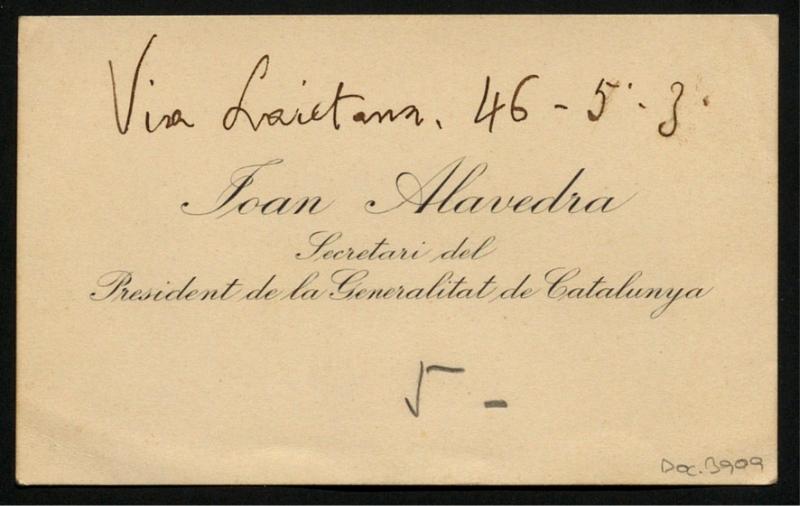 Via Laietana, 46 - 5º - 3ª
Joan Alavedra
Secretari del
President de la Generalitat de Catalunya
5 -
Doc. 3909